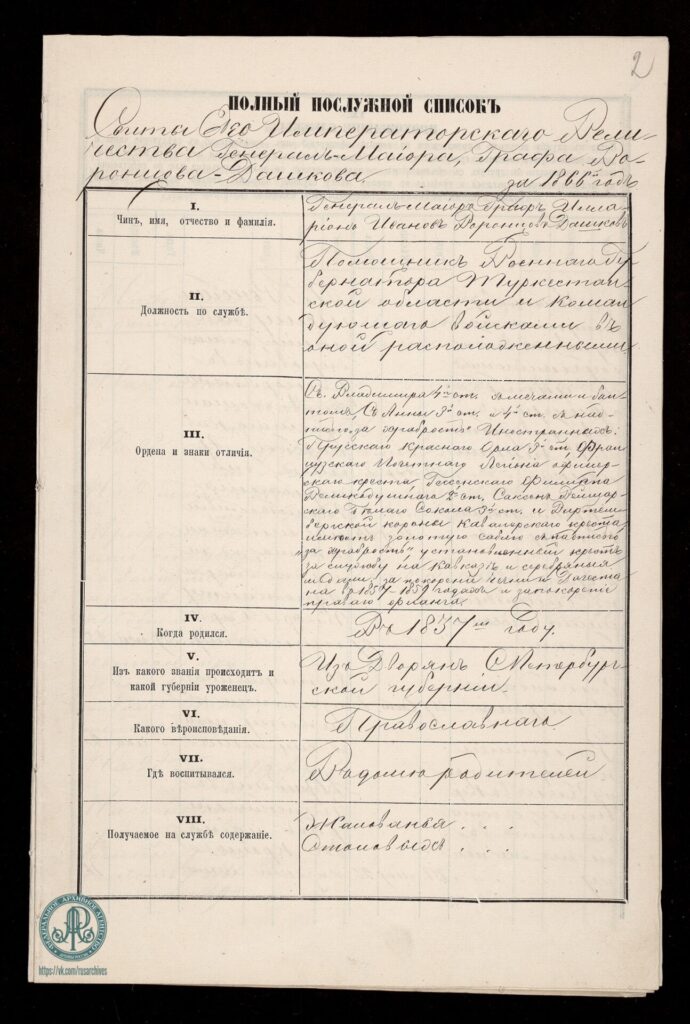 2
ПОЛНЫЙ ПОСЛУЖНОЙ СПИСОКЪ
Свиты Его Императорскаго Вели-
чества Генералъ-Маіора, Графа Во-
ронцова-Дашкова.
за 1866й годъ
I.
Чинъ, имя, отчество и фамилія.
Генералъ-Маіоръ Графъ Илла-
ріонъ Ивановъ Воронцовъ-Дашковъ
II.
Должность по службѣ.
Помощникъ Военнаго Гу-
бернатора Туркестан-
ской области и Коман-
дующаго войсками въ
оной расположенными
III.
Ордена и знаки отличія.
Св. Владиміра 4й ст. съ мечами и бан-
томъ, Св. Анны 3й ст. и 4й ст. съ над-
писью за храбрость. Иностранныхъ:
Прусскаго Краснаго Орла ст. Фран-
цузскаго Почетнаго Легіона офицер-
скаго креста Гессенскаго Филиппа
Великодушнаго 2й ст. Саксенъ Веймар-
скаго Бѣлаго Сокола ст. и Виртем-
бергской короны Кавалерскаго креста
имѣетъ золотую саблю съ надписью
„за храбрость" установленный крестъ
за службу на Кавказѣ и серебряныя
медали: за покореніе Чечни и Дагеста-
на въ 1857, 1859 годахъ и за покореніе
IV.
Когда родился.
Въ 1837мъ году.
V.
Изъ какого званія происходитъ и
какой губерніи уроженецъ.
Изъ Дворянъ С.Петербург-
ской губерніи.
VI.
Какого вѣроисповѣданія.
Православнаго.
VII.
Гдѣ воспитывался.
В домѣ родителей
VIII.
Получаемое на службѣ содержаніе.
Жалованья . .
Столовыхъ . .
ФЕДЕРАЛЬНОЕ АРХИВНОЕ АГЕНТСТВО
https://vk.com/rusarchives